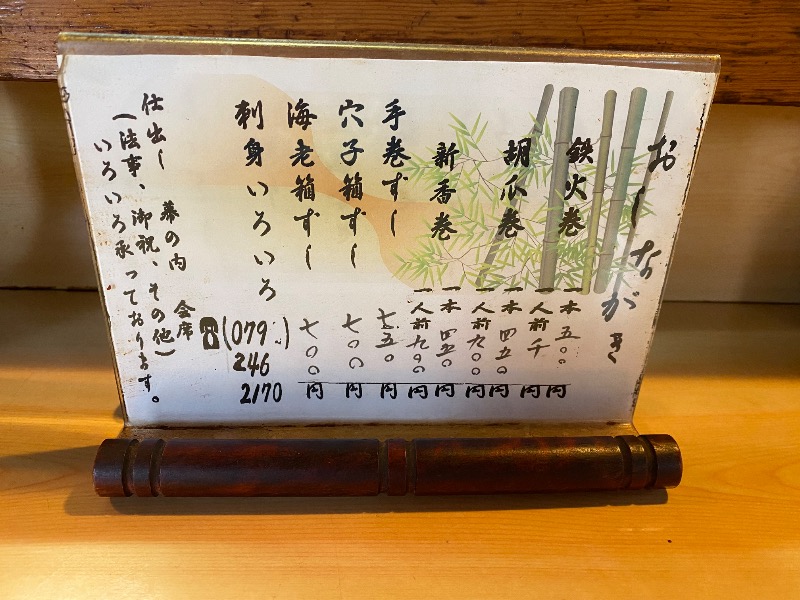 おしながき
鉄火巻 一本 五〇〇円
一人前 千円
胡瓜巻 一本 四五〇円
一人前 九〇〇円
新香巻 一本 四五〇円
一人前 九〇〇円
手巻ずし 七五〇円
穴子箱ずし 七〇〇円
海老箱ずし 七〇〇円
刺身いろいろ
☎(079)
246
2170
仕出し 幕の内 会席
(法事、御祝、その他)
いろいろ承っております。